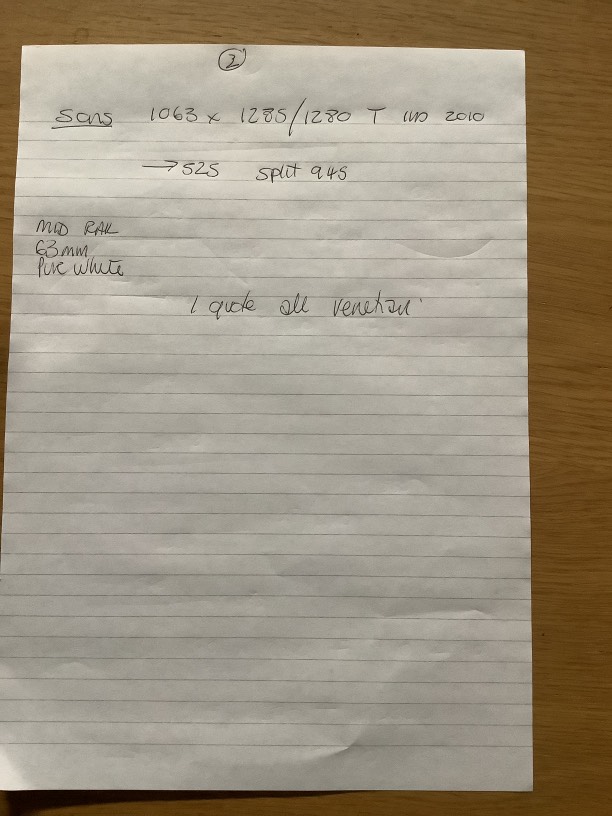 2
Sams 1063 x 1285/1280 T 2010
→ 525 split 945
MID RAIL
63mm
Pure White
1 quote all venetian